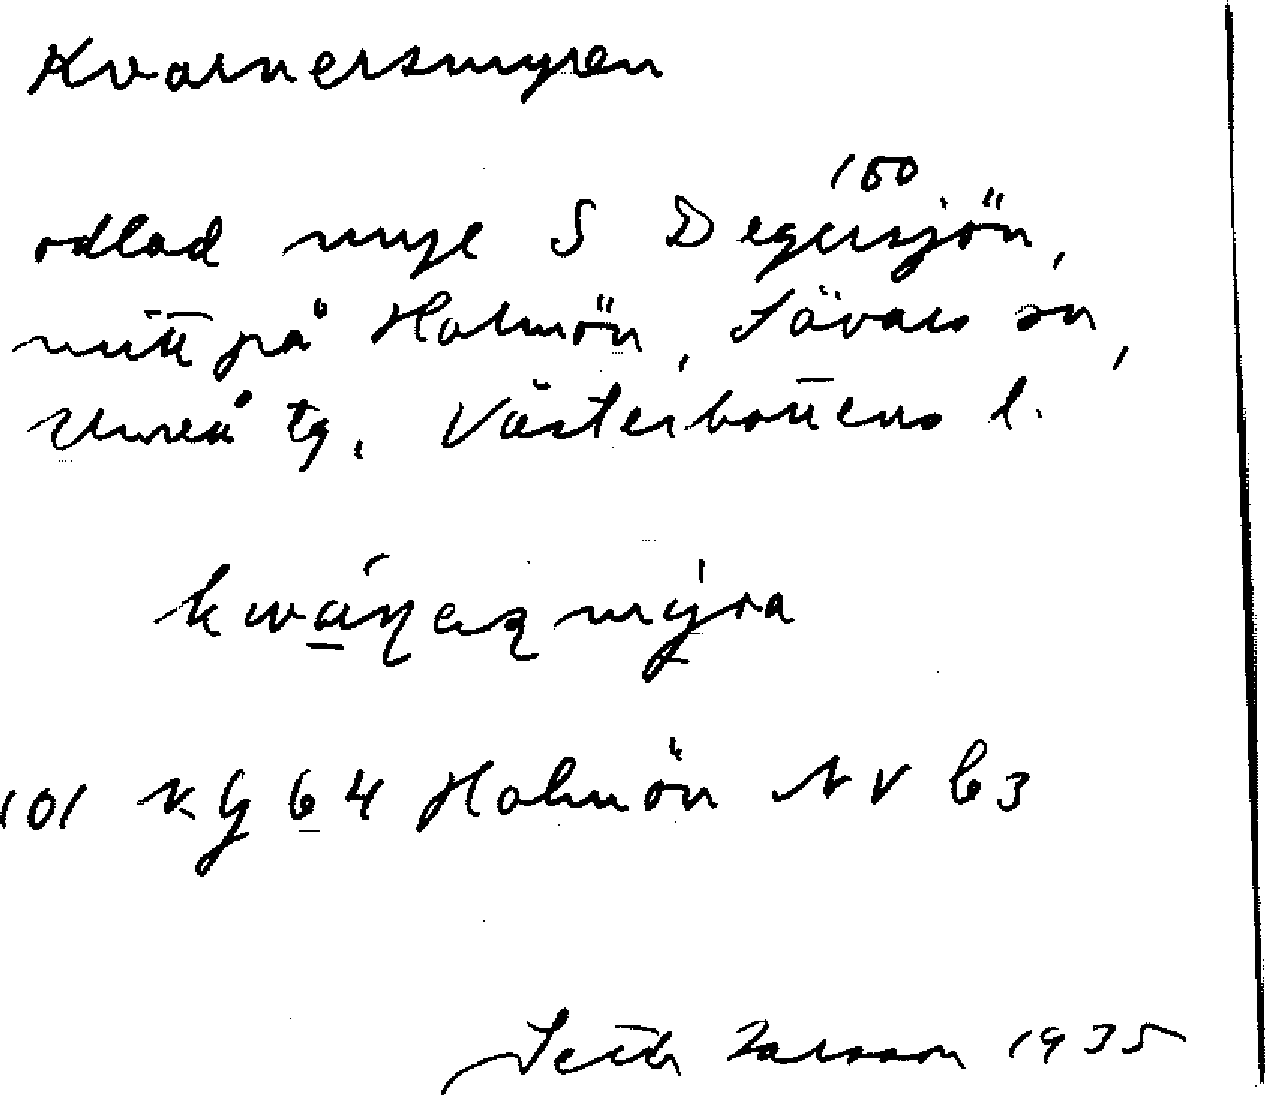 Kvarnersmyren
160
odlad myr S Degersjön,
mitt på Holmön, Sävars sn,
Umeå tg. Västerbottens l.
myra
101 Kg 64 Holmön NV b3
Seth Larsson 1935